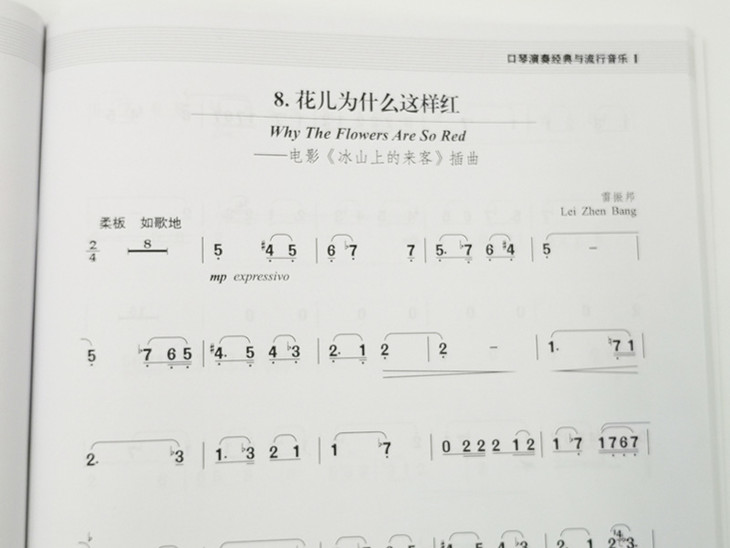 口琴演奏经典与流行音乐 1
8. 花儿为什么这样红
Why The Flowers Are So Red
——电影《冰山上的来客》插曲
雷振邦
Lei Zhen Bang
柔板 如歌地
2/4 8 | 5 #4 5 | 6 b7 7 | 5. b7 6 #4 | 5 – |
mp expressivo
5 b7 6 5 | #4. 5 4 b3 | 2. 1 2 | 2 – | 1. ♮7 1 |
2. b3 | 1. b3 2 1 | 1 b7 | 0 2 2 2 2 1 2 | 1 b7 1 7 6 7 |